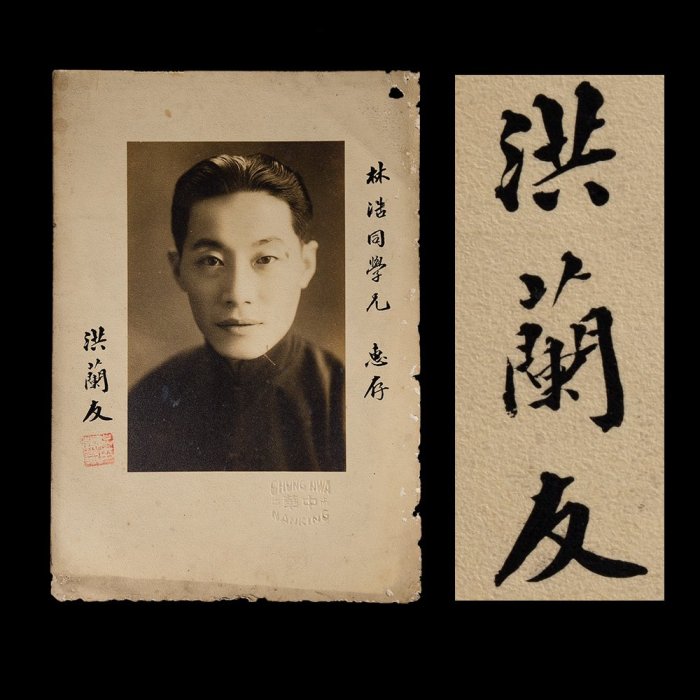 林浩同學兄 惠存
洪蘭友
CHUNG HWA
中華
NANKING
洪蘭友